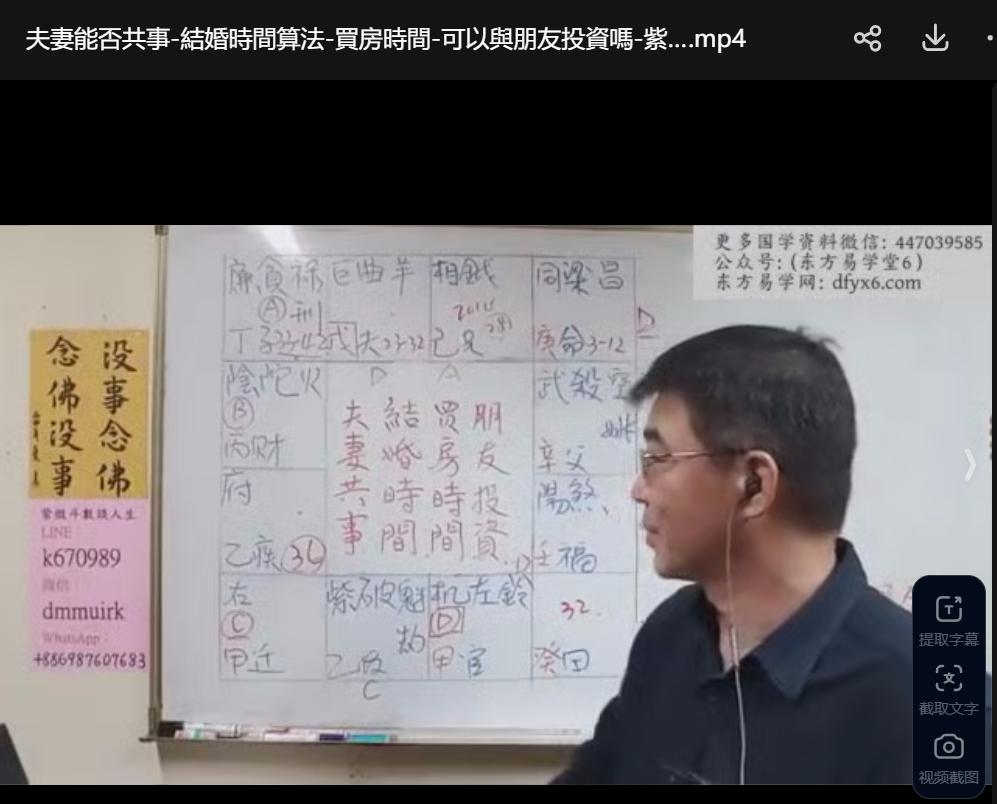 夫妻能否共事-結婚時間算法-買房時間-可以與朋友投資嗎-紫....mp4
更多国学资料微信: 447039585
公众号: (东方易学堂6)
东方易学网: dfyx6.com
没事念佛
念佛没事
紫微斗數談人生
LINE:
k670989
微信:
dmmuirk
WhatsApp:
+886987607683
廉貪祿
A刑
丁子33-42
巨曲羊
戊夫23-32
相鉞
2014
己兄
同梁昌
庚命3-12
D
陰陀火
B
丙財
D A
武殺空
姚
辛父
夫妻共事
結婚時間
買房時間
朋友投資
府
乙疾36
陽煞
壬福
D
右
C
甲迁
紫破魁
乙
C
机左鈴
D
甲官
32.
癸田
提取字幕
截取文字
视频截图